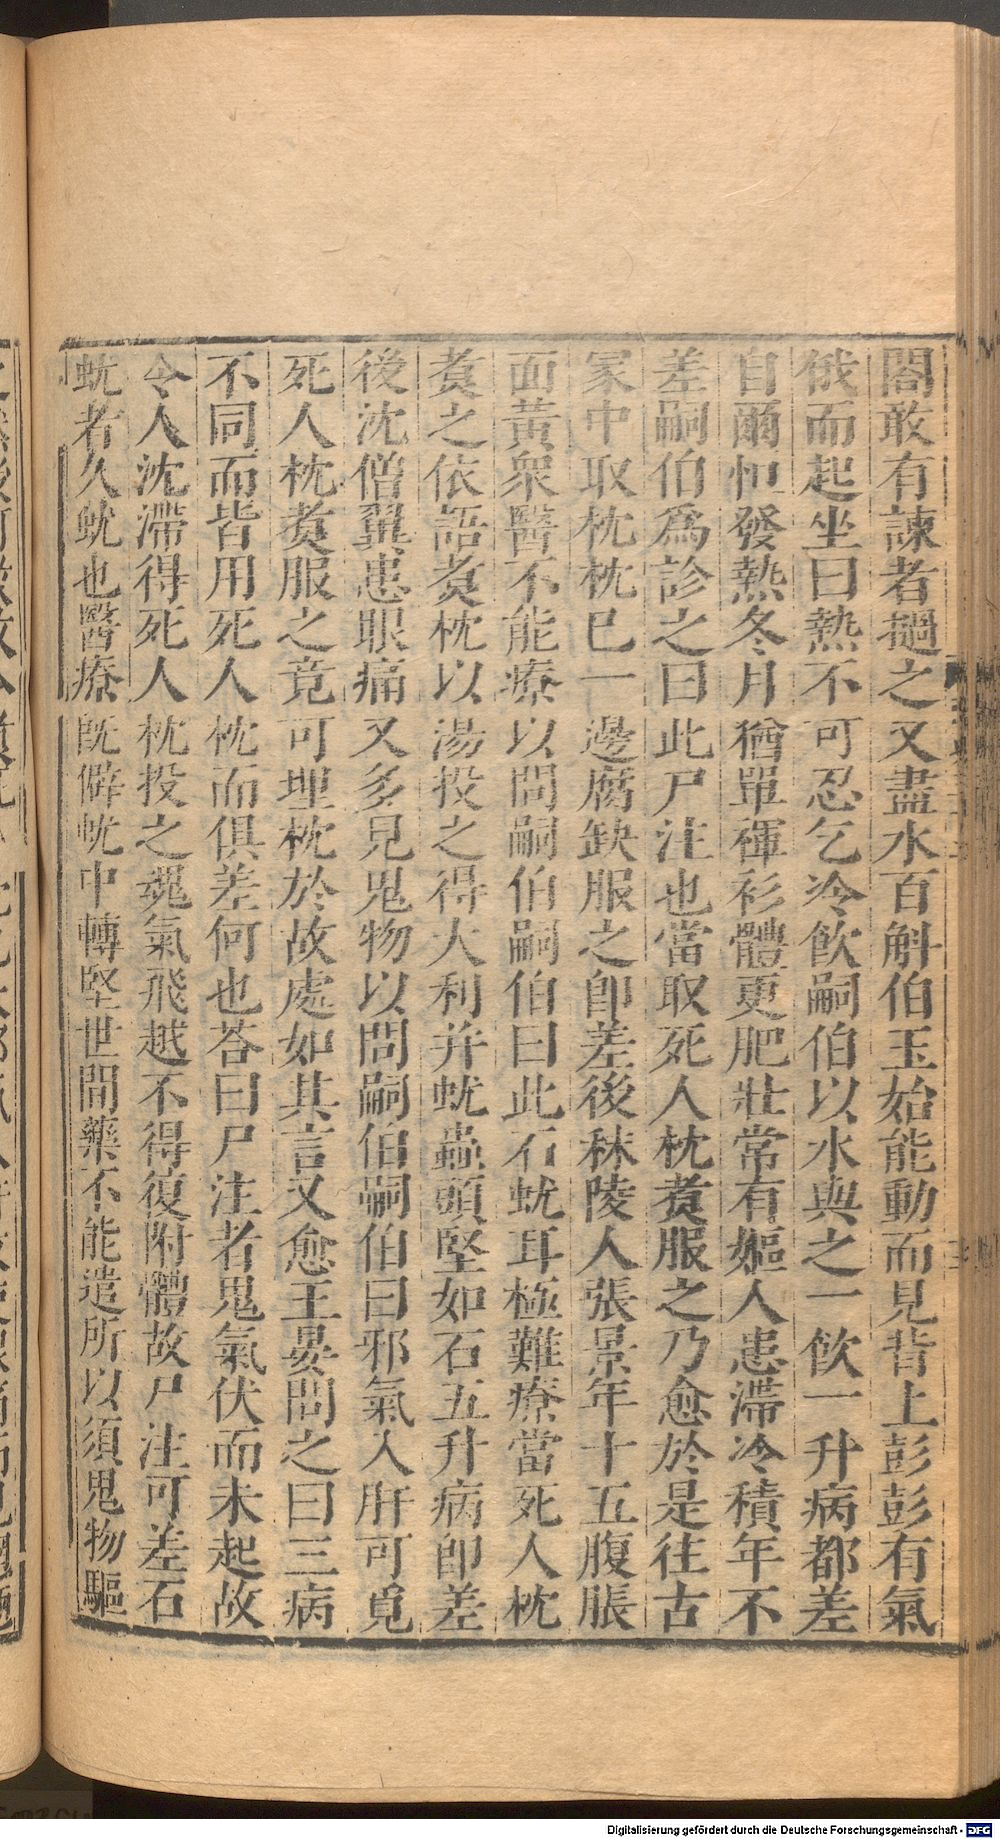 閤敢有諫者撾之又盡水百斛伯玉始能動而見背上彭彭有氣
俄而起坐曰熱不可忍乞冷飲嗣伯以水與之一飲一升病都差
自爾恒發熱冬月猶單褌衫體更肥壯常有嫗人患滯冷積年不
差嗣伯爲診之曰此尸注也當取死人枕煑服之乃愈於是往古
冢中取枕枕巳一邊腐缺服之即差後秣陵人張景年十五腹脹
面黃衆醫不能療以問嗣伯嗣伯曰此石蚘耳極難療當死人枕
煑之依語煑枕以湯投之得大利并蚘蟲頭堅如石五升病即差
後沈僧翼患眼痛又多見鬼物以問嗣伯嗣伯曰邪氣入肝可覓
死人枕煑服之竟可埋枕於故處如其言又愈王晏問之曰三病
不同而皆用死人枕而俱差何也荅曰尸注者鬼氣伏而未起故
令人沈滯得死人枕投之魂氣飛越不得復附體故尸注可差石
蚘者久蚘也醫療既僻蚘中轉堅世間藥不能遣所以須鬼物驅
Digitalisierung gefördert durch die Deutsche Forschungsgemeinschaft - DFG